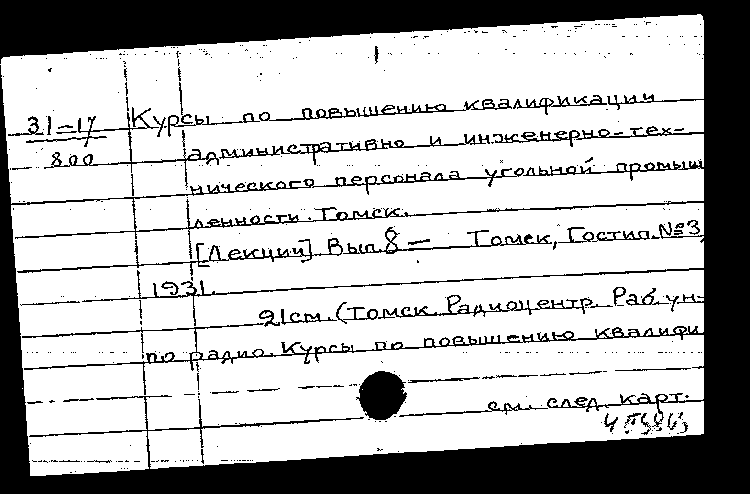 31-17
800
Курсы по повышению квалификации
административно и инженерно-тех-
нического персонала угольной промыш
ленности. Томск.
[Лекции]. Вып. 8 — Томск, Гостип. №3,
1931.
21 см. (Томск. Радиоцентр. Раб. ун-
по радио. Курсы по повышению квалифи
см. след. карт.